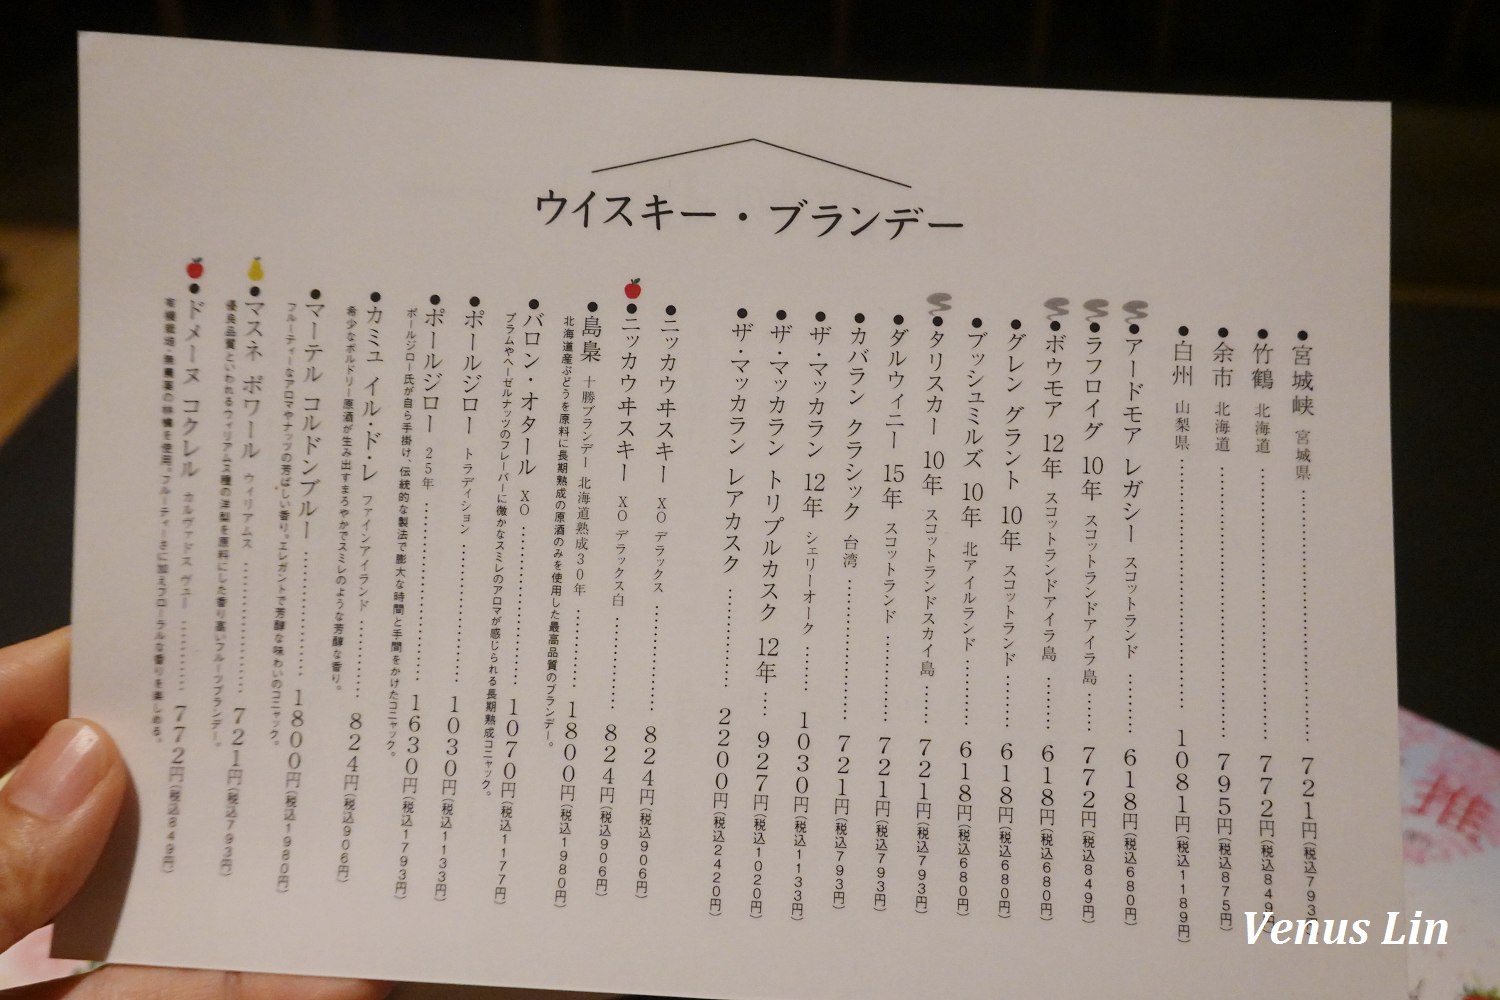 ウイスキー・ブランデー
●宮城峡 宮城県 721円(税込793円)
●竹鶴 北海道 772円(税込849円)
●余市 北海道 795円(税込875円)
●白州 山梨県 1081円(税込1189円)
●アードモア レガシー スコットランド 618円(税込680円)
●ラフロイグ 10年 スコットランドアイラ島 772円(税込849円)
●ボウモア 12年 スコットランドアイラ島 618円(税込680円)
●グレン グラント 10年 スコットランド 618円(税込680円)
●ブッシュミルズ 10年 北アイルランド 618円(税込680円)
●タリスカー 10年 スコットランドスカイ島 721円(税込793円)
●ダルウィニー 15年 スコットランド 721円(税込793円)
●カバラン クラシック 台湾 721円(税込793円)
●ザ・マッカラン 12年 シェリーオーク 1030円(税込1133円)
●ザ・マッカラン トリプルカスク 12年 927円(税込1020円)
●ザ・マッカラン レアカスク 2200円(税込2420円)
●ニッカウヰスキー XO デラックス 824円(税込906円)
●ニッカウヰスキー XO デラックス白 824円(税込906円)
●島梟 十勝ブランデー 北海道熟成30年 1800円(税込1980円)
北海道産ぶどうを原料に長期熟成の原酒のみを使用した最高品質のブランデー。
●バロン・オタール XO 1070円(税込1177円)
プラムやヘーゼルナッツのフレーバーに微かなスミレのアロマが感じられる長期熟成コニャック。
●ポールジロー トラディション 1030円(税込1133円)
●ポールジロー 25年 1630円(税込1793円)
ポールジロー氏が自ら手掛け、伝統的な製法で膨大な時間と手間をかけたコニャック。
●カミュ イル・ド・レ ファインアイランド 824円(税込906円)
希少なボルドリー原酒が生み出すまろやかでスミレのような芳醇な香り。
●マーテル コルドンブルー 1800円(税込1980円)
フルーティーなアロマやナッツの芳ばしい香り。エレガントで芳醇な味わいのコニャック。
●マスネ ポワール ウィリアムス 721円(税込793円)
優良品質といわれるウィリアムス種の洋梨を原料にした香り高いフルーツブランデー。
●ドメーヌ コクレル カルヴァドス ヴュー 772円(税込849円)
有機栽培・無農薬の林檎を使用。フルーティーさに加えフローラルな香りを楽しめる。
推
Venus Lin